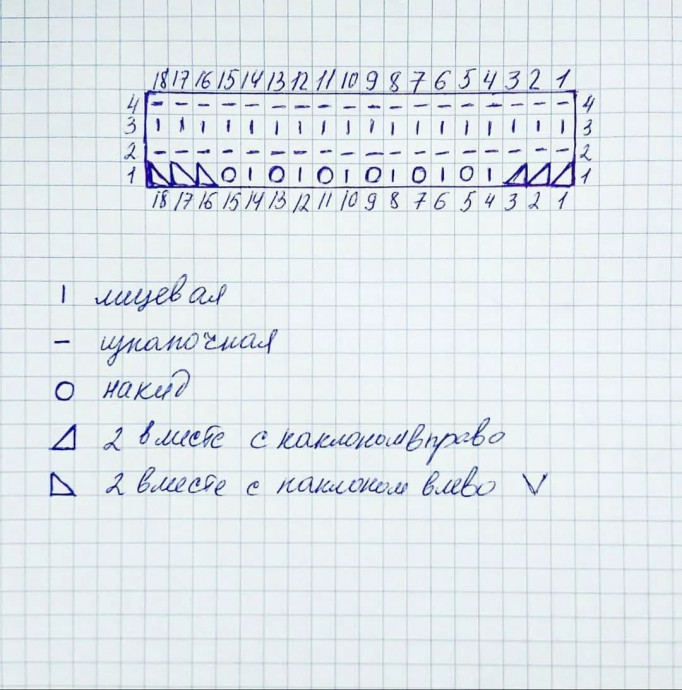 18 17 16 15 14 13 12 11 10 9 8 7 6 5 4 3 2 1
4 - - - - - - - - - - - - - - - - - - 4
3 | | | | | | | | | | | | | | | | | | 3
2 - - - - - - - - - - - - - - - - - - 2
1 ◺ ◺ ◺ O | O | O | O | O | O | ◿ ◿ ◿ 1
18 17 16 15 14 13 12 11 10 9 8 7 6 5 4 3 2 1
| лицевая
- изнаночная
O накид
◿ 2 вместе с наклоном вправо
◺ 2 вместе с наклоном влево V